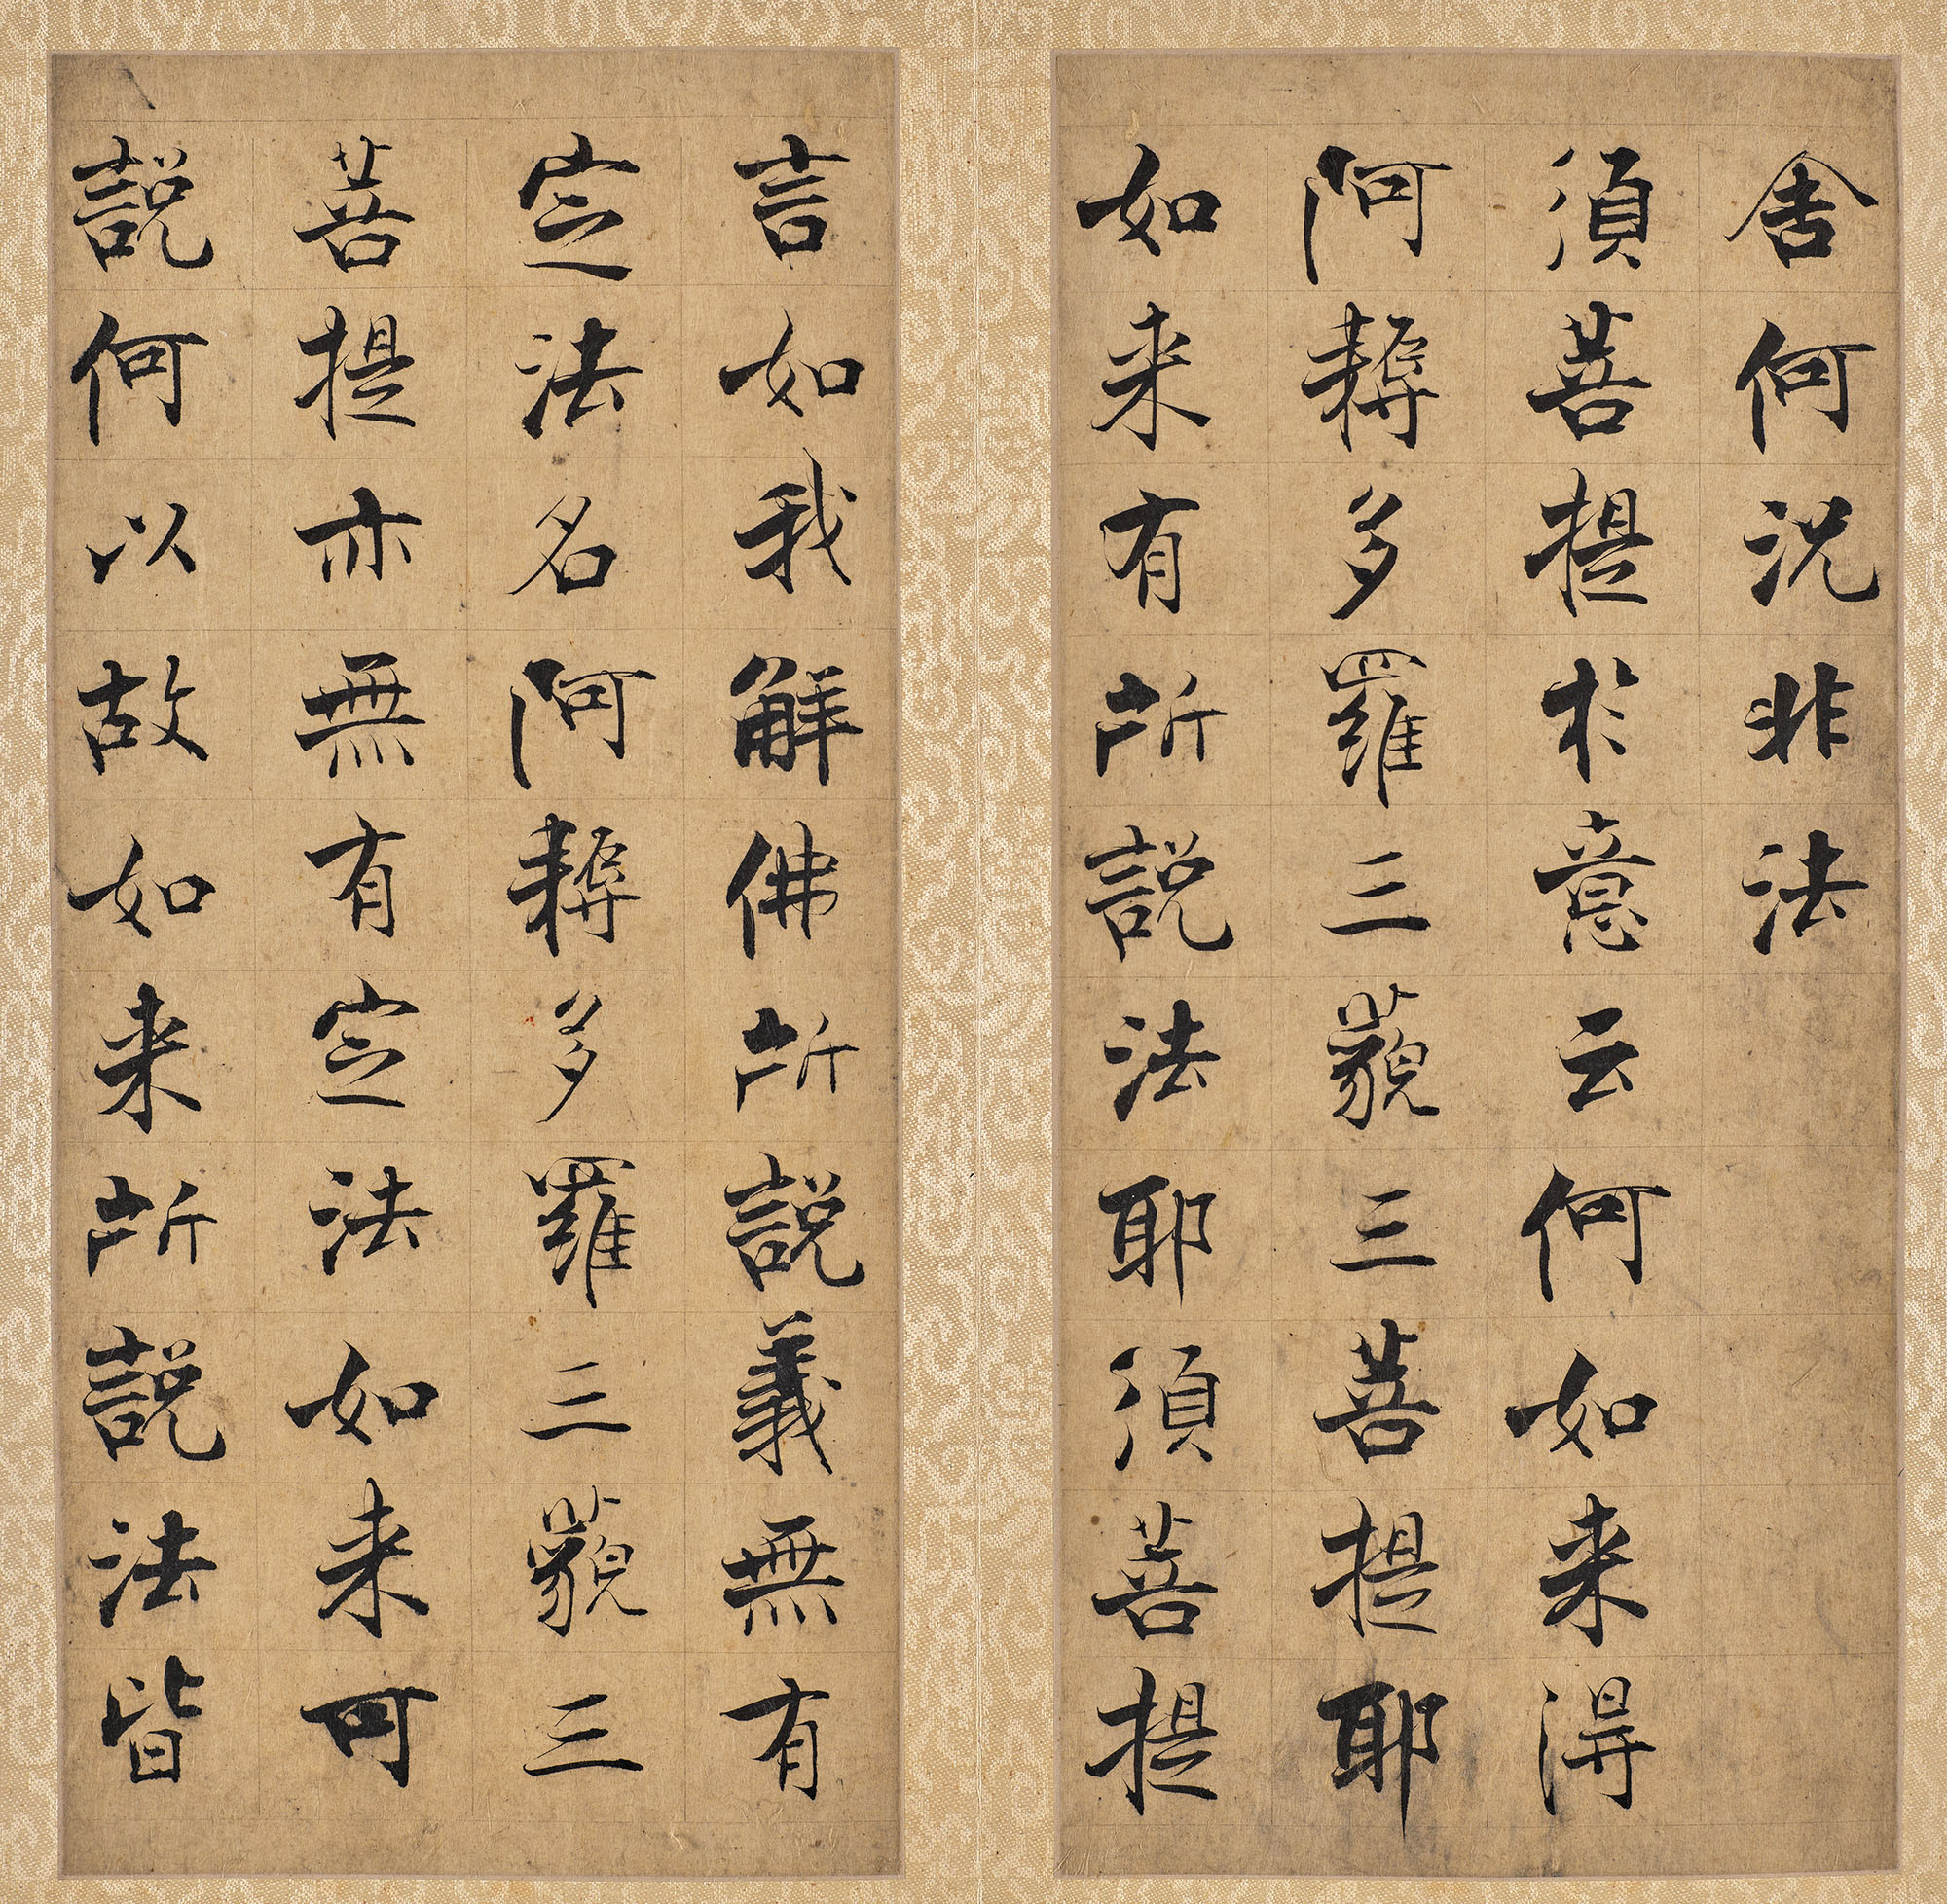 舍何況非法
須菩提於意云何如来得
阿耨多羅三藐三菩提耶
如来有所說法耶須菩提
言如我解佛所說義無有
定法名阿耨多羅三藐三
菩提亦無有定法如来可
說何以故如来所說法皆